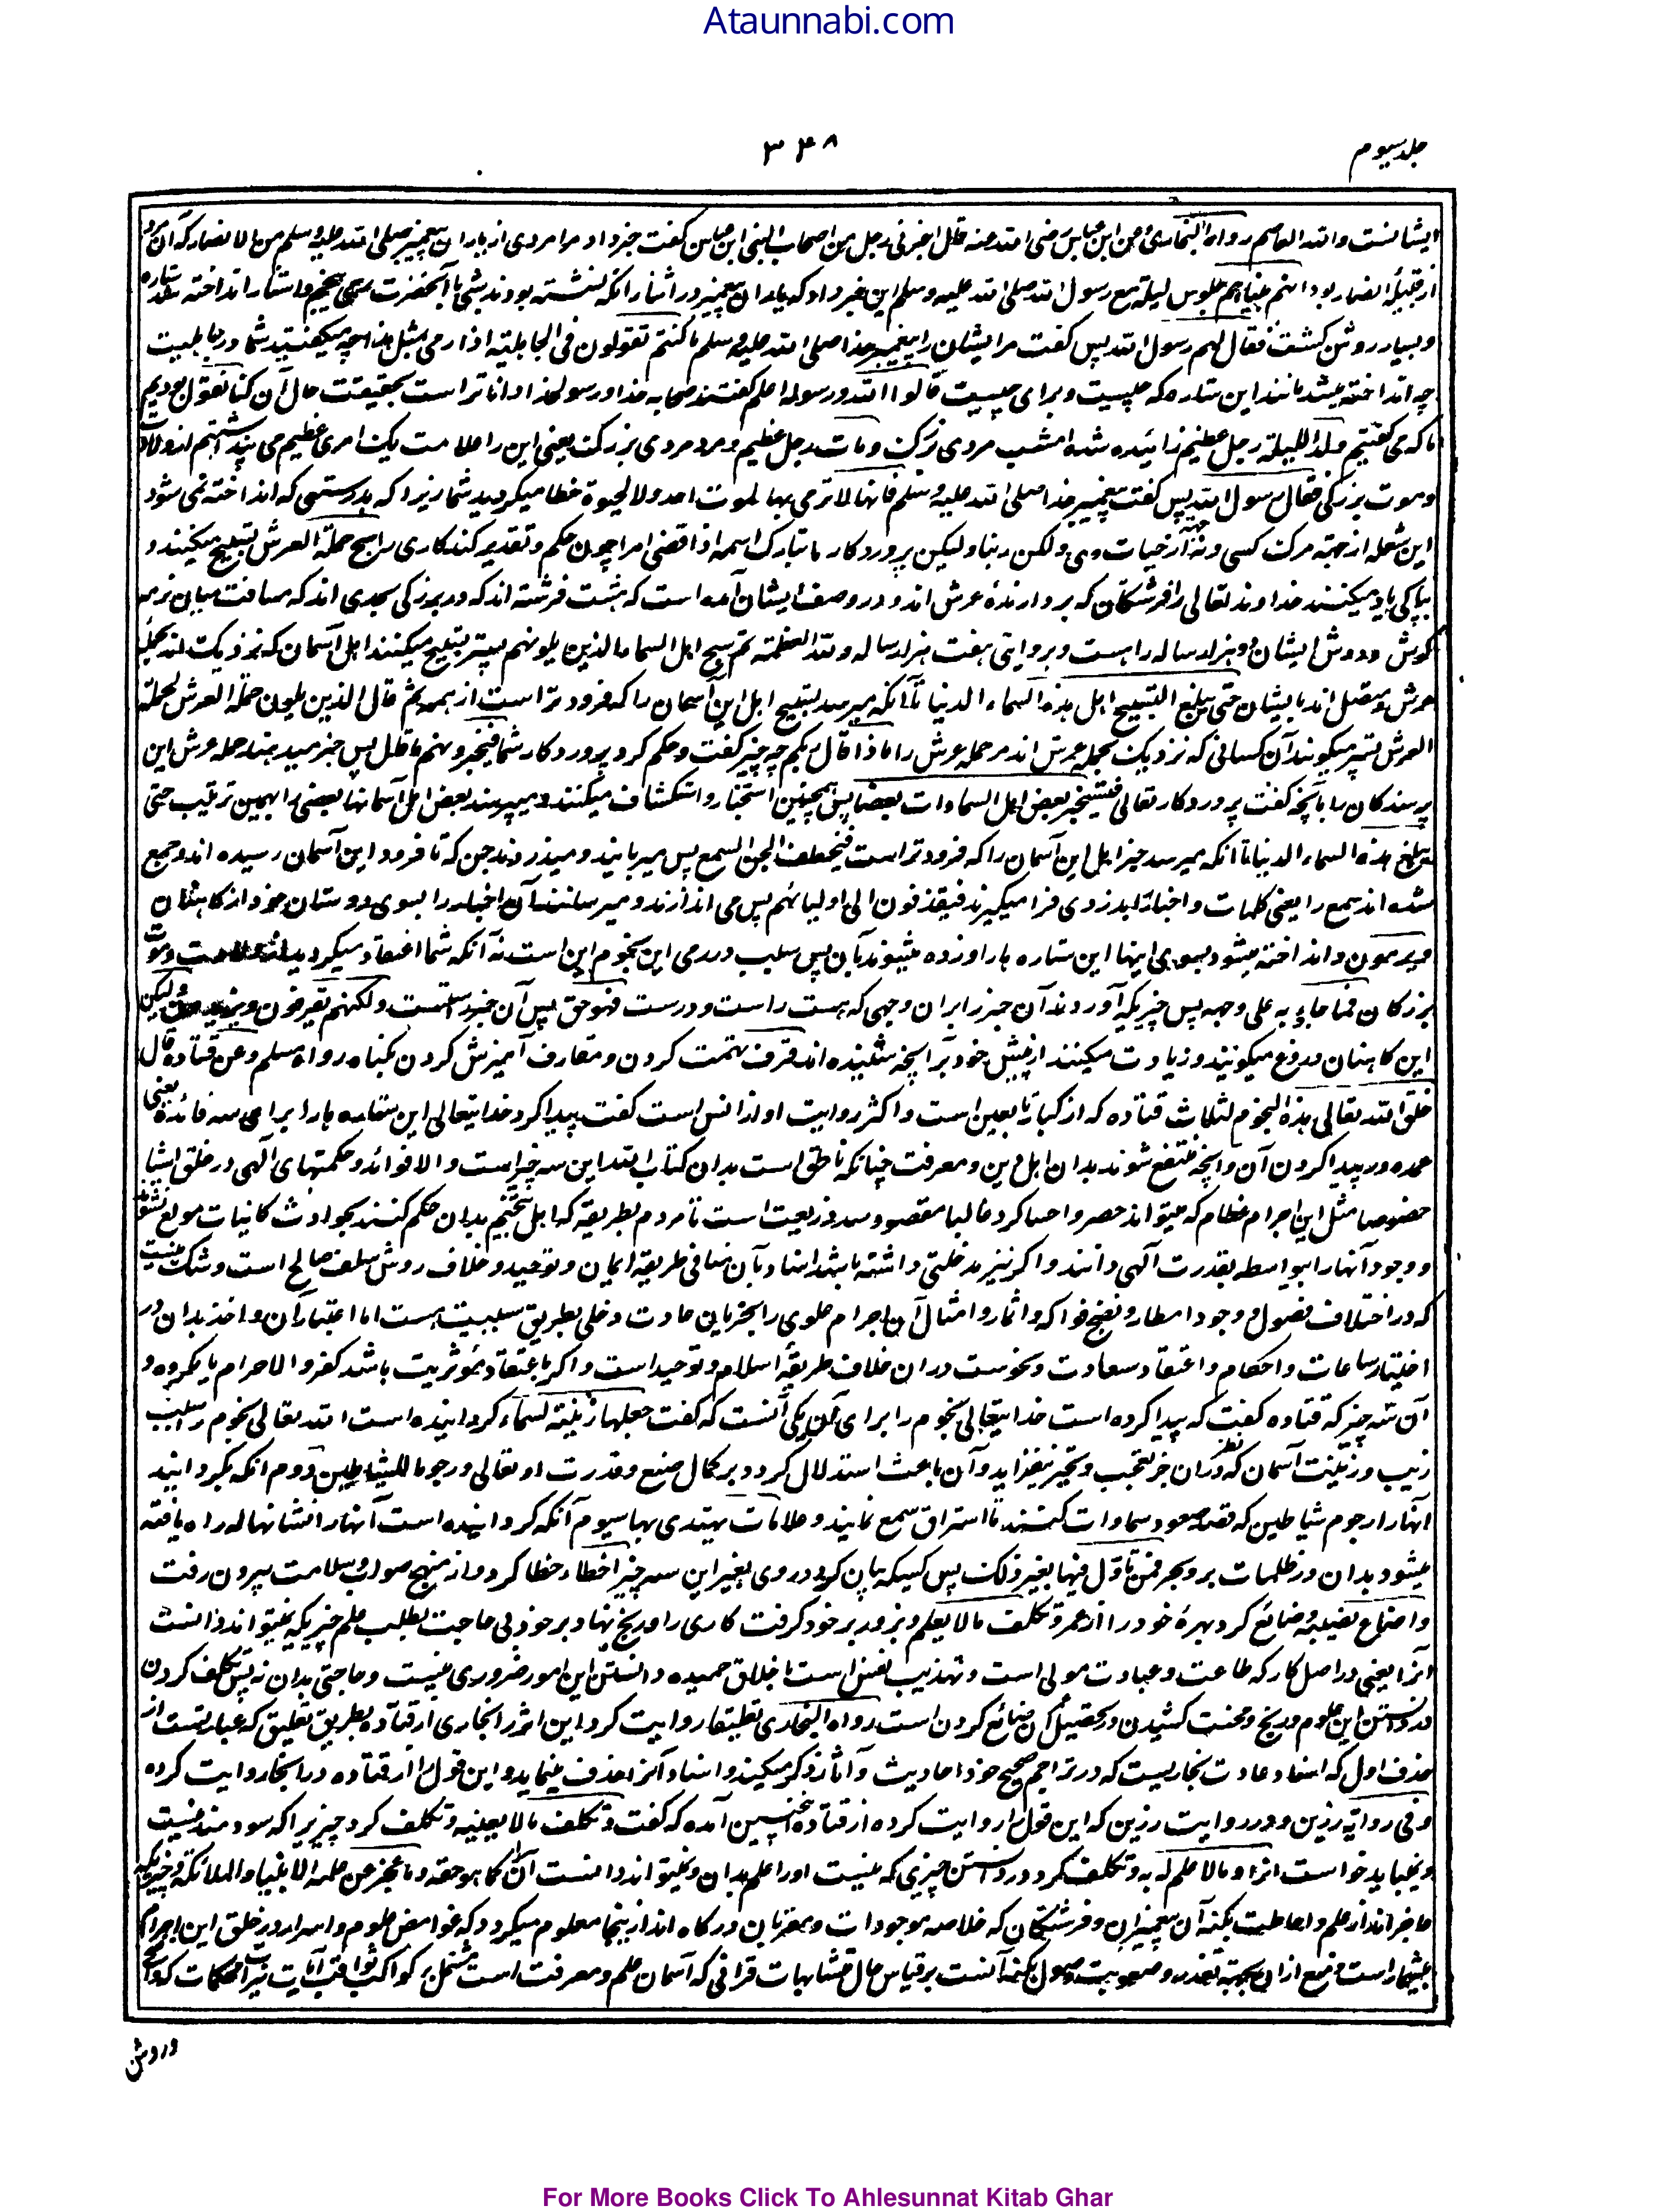 Ataunnabi.com
جلد سیوم
۳۴۸
ایشانست والله العاصم رواه البخاری وعن ابن عباس رضی الله عنه قال اخبرنی رجل من اصحاب النبی ابن عباس گفت خبر داد مرا مردی از یاران پیغمبر صلی الله علیه وسلم من الانصار که آن مرد
از قبیلهٔ انصار بود انهم بیناهم جلوس لیلة مع رسول الله صلی الله علیه وسلم این خبر داد که یاران پیغمبر در اثنا آنکه نشسته بودند شبی با آنحضرت رمی بنجم واستنار انداخته شد ستاره
و بسیار روشن گشت فقال لهم رسول الله پس گفت مر ایشان را پیغمبر خدا صلی الله علیه وسلم ما کنتم تقولون فی الجاهلیة اذا رمی بمثل هذا چه میگفتید شما در جاهلیت
چه انداخته میشد مانند این ستاره که چیست و برای چیست قالوا الله ورسوله اعلم گفتند صحابه خدا و رسول خدا داناتر است بحقیقت حال آن کنا نقول بودیم
ما که می گفتیم ولد اللیلة رجل عظیم زائیده شد امشب مردی بزرگ ومات رجل عظیم و مرد مردی بزرگ یعنی این را علامت یک امری عظیم می پنداشتیم از ولادت
و موت بزرگی فقال رسول الله پس گفت پیغمبر خدا صلی الله علیه وسلم فانها لا ترمی بها لموت احد ولا لحیوة خطا میکردید شما زیرا که بدرستی که انداخته نمی شود
این شعله از جهة مرگ کسی و نه از جهة حیات وی ولکن ربنا ولیکن پروردگار ما تبارک اسمه اذا قضی امرا چون حکم و تقدیر کند کاری را سبح حملة العرش تسبیح میکنند و
بپاکی یاد میکنند خداوند تعالی را فرشتگان که بردارندهٔ عرش اند و در وصف ایشان آمده است که هشت فرشته اند که در بزرگی بحدی اند که مسافت میان نرمه
گوش و دوش ایشان دو هزار ساله راه است و بروایتی هفت هزار ساله ولله العظمة ثم سبح اهل السماء الذین یلونهم پستر تسبیح میکنند اهل آسمان که نزدیک اند بحملهٔ
عرش و متصل اند بایشان حتی یبلغ التسبیح اهل هذه السماء الدنیا تا آنکه میرسد تسبیح اهل این آسمان را که فرودتر است از همه ثم قال الذین یلون حملة العرش لحملة
العرش پستر میگویند آن کسانی که نزدیک بحملهٔ عرش اند مر حمله عرش را ماذا قال ربکم چه چیز گفت و حکم کرد پروردگار شما فیخبرونهم ما قال پس خبر میدهند حمله عرش این
پرسندگان را بآنچه گفت پروردگار تعالی فیستخبر بعض اهل السماوات بعضا پس همچنین استخبار و استکشاف میکنند و میپرسند بعض اهل آسمانها بعضی را بهمین ترتیب حتی
یبلغ هذه السماء الدنیا تا آنکه میرسد خبر اهل این آسمان را که فرودتر است فیخطف الجن السمع پس میربایند و میدزدند جن که تا فرود این آسمان رسیده اند و جمع
شده اند سمع را یعنی کلمات و اخبار را بدزدی فرا میگیرند فیقذفون الی اولیائهم پس می اندازند و میرسانند آن اخبار را بسوی دوستان خود از کاهنان
ویرمون و انداخته میشود بسوی اینها این ستاره ها و زده میشوند بآن پس سبب در رمی این نجوم این است نه آنکه شما اعتقاد میکردید از علامت و موت
بزرگان فما جاءوا به علی وجهه پس چیزیکه آوردند آن خبر را بران وجهی که هست راست و درست فهو حق پس آن خبر راستست ولکنهم یقرفون ویزیدون ولیکن
این کاهنان دروغ میگویند و زیادت میکنند از پیش خود بر آنچه شنیده اند قرف تهمت کردن و مقارف آمیزش کردن بگناه رواه مسلم وعن قتادة قال
خلق الله تعالی هذه النجوم لثلاث قتاده که از کبار تابعین است و اکثر روایت او از انس است گفت پیدا کرد خدایتعالی این ستاره ها را برای سه فائده یعنی
عمده در پیدا کردن آن و آنچه منتفع شوند بدان اهل دین و معرفت چنانکه ناطق است بدان کتاب الله این سه چیز است و الا فوائد و حکمتهای الهی در خلق اشیا
خصوصا مثل این اجرام عظام که میتواند حصر و احصا کرد غالبا مقصود سد ذریعت است تا مردم بطریقه که اهل تنجیم بدان حکم کنند بحوادث کائنات مولع نشوند
و وجود آنها را بواسطه بقدرت الهی دانند و اگر نیز مدخلتی داشته باشد اسناد بآن منافی طریقه ایمان و توحید و خلاف روش سلف صالح است و شک نیست
که در اختلاف فصول و وجود امطار و نضج فواکه و اثمار و امثال آن اجرام علوی را بجریان عادت دخلی بطریق سببیت هست اما اعتبار آن و اخذ بدان در
اختیار ساعات و احکام و اعتقاد سعادت و نحوست در ان خلاف طریقهٔ اسلام و توحید است و اگر باعتقاد مؤثریت باشد کفر و الا حرام یا مکروه و
آن سه چیز که قتاده گفت که پیدا کرده است خدایتعالی نجوم را برای آن یکی آنست که گفت جعلها زینة للسماء گردانیده است الله تعالی نجوم را سبب
زیب و زینت آسمان که نظر در ان جز تعجب و تحیر نیفزاید و آن باعث استدلال گردد بر کمال صنع و قدرت او تعالی ورجوما للشیاطین دوم آنکه بگردانید
آنها را رجوم شیاطین که قصد صعود سماوات کنند تا استراق سمع نمایند وعلامات یهتدی بها سیوم آنکه گردانیده است آنها را نشانها که راه یافته
میشود بدان در ظلمات بر و بحر فمن تاول فیها بغیر ذلک پس کسیکه بیان کرد در وی بغیر این سه چیز اخطاء خطا کرد و از منهج صواب و سلامت بیرون رفت
واضاع نصیبه و ضائع کرد بهرهٔ خود را از عمر وتکلف ما لا یعلم و بزور بر خود گرفت کاری را و رنج نهاد بر خود بی حاجت بطلب علم چیزیکه نمیتواند دانست
آنرا یعنی در اصل کار که طاعت و عبادت مولی است و تهذیب نفس است باخلاق حمیده دانستن این امور ضروری نیست و حاجتی بدان نه پس تکلف کردن
در دانستن این علوم و رنج و محنت کشیدن در تحصیل آن ضائع کردن است رواه البخاری تعلیقا روایت کرد این اثر را بخاری از قتاده بطریق تعلیق که عبارتست از
حذف اول که اسناد عادت بخاریست که در تراجم صحیح خود احادیث و آثار ذکر میکند و اسناد آنرا حذف مینماید و این قول را از قتاده در بخاری روایت کرده
وفی روایة رزین و در روایت رزین که این قول را روایت کرده از قتاده چنین آمده که گفت وتکلف ما لا یعنیه و تکلف کرد چیزیرا که سودمند نیست
و نمیباید خواست آنرا وما لا علم له به و تکلف کرد در دانستن چیزی که نیست او را علم بدان و نمیتواند دانست آنرا کما هو حقه وما عجز عن علمه الانبیاء والملائکة و چیزیکه
عاجز اند از علم و احاطت بکنه آن پیغمبران و فرشتگان که خلاصه موجودات و مقربان درگاه اند از اینجا معلوم میگردد که غوامض علوم و اسرار در خلق این اجرام
بیشمار است و منع از ان بجهة تعذر و صعوبت وصول بکنه آنست بر قیاس حال متشابهات قرآنی که آسمان علم و معرفت است مشتمل بر کواکب ثواقب آیات بینات محکمات که واضح
و روشن
For More Books Click To Ahlesunnat Kitab Ghar